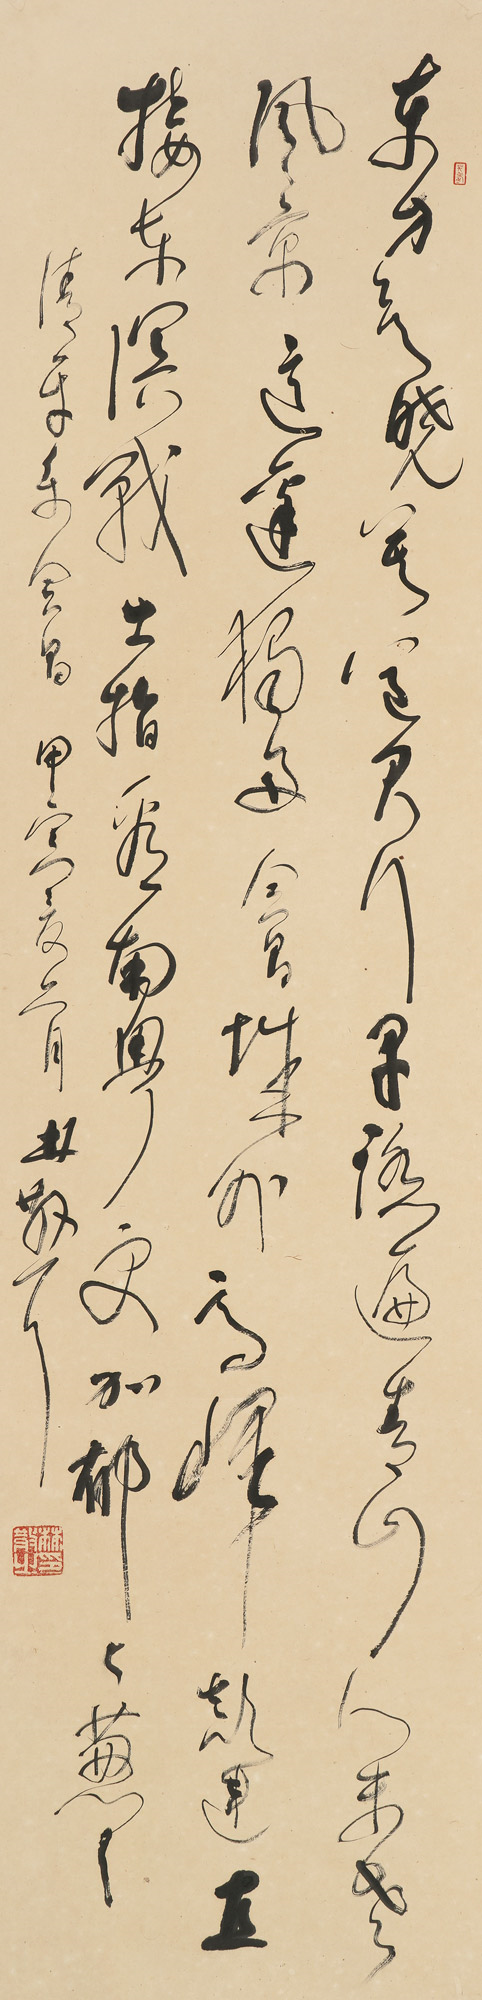 东方欲曉莫道君行早踏遍青山人未老
風景這邊獨好會昌城外高峰顛連直
接东溟戰士指看南粵更加郁々葱々
清平乐會昌 甲寅夏六月 林散耳